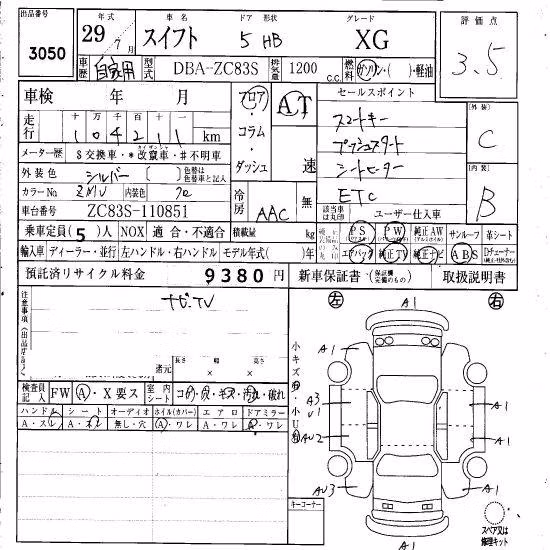 出品番号 年式 車名 ドア 形状 グレード 評価点
3050 29年 7月 スイフト 5 HB XG 3.5
車歴 自家用 型式 DBA-ZC83S 排気量 1200 c.c. 燃料 ガソリン・( )・軽油
車検 年 月 フロア・ AT セールスポイント 外装
走行 十万 万 千 百 十 一 コラム・ スマートキー C
1 0 4 2 1 1 km プッシュスタート
メーター歴 $交換車・*改竄車・#不明車 ダッシュ 速 シートヒーター 内装
外装色 シルバー [ ] 色替は色替車と記入 冷房 無 ETC B
カラーNo ZMV 内装色 該当車は丸印 ユーザー仕入車
車台番号 ZC83S-110851 AAC
乗車定員(5)人 NOX 適合・不適合 積載量 kg PS PW 純正AW サンルーフ 革シート
輸入車 ディーラー・並行 左ハンドル・右ハンドル モデル年式( )年 エアバック 純正TV 純正ナビ ABS
預託済リサイクル料金 9380円 新車保証書・(保証書) 取扱説明書
注意事項 ナビTV 左 A1 右
諸元 長さ 幅 高さ
× ×
検査員記入 FW A・X要ス 室内シート コゲ・穴・キズ・汚れ・破れ
ハンドル シート オーディオ ホイル(カバー) エアロ ドアミラー
A・スレ A・スレ 無し・穴 A・ワレ A・ワレ A・ワレ
小キズ
A1 A1
A3
U1 A1
AU2 A1
AU3 A1
キーコーナー A1 スペア又は修理キット